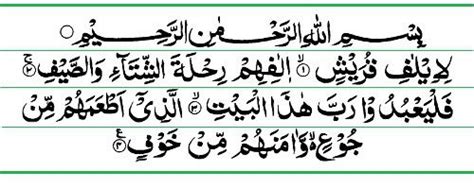 بِسْمِ اللهِ الرَّحْمٰنِ الرَّحِيْمِ ۝
لِاِيْلٰفِ قُرَيْشٍ ۝١ اٖلٰفِهِمْ رِحْلَةَ الشِّتَآءِ وَالصَّيْفِ ۝٢
فَلْيَعْبُدُوْا رَبَّ هٰذَا الْبَيْتِ ۝٣ الَّذِيْٓ اَطْعَمَهُمْ مِّنْ
جُوْعٍ ەۙ وَّاٰمَنَهُمْ مِّنْ خَوْفٍ ۝٤